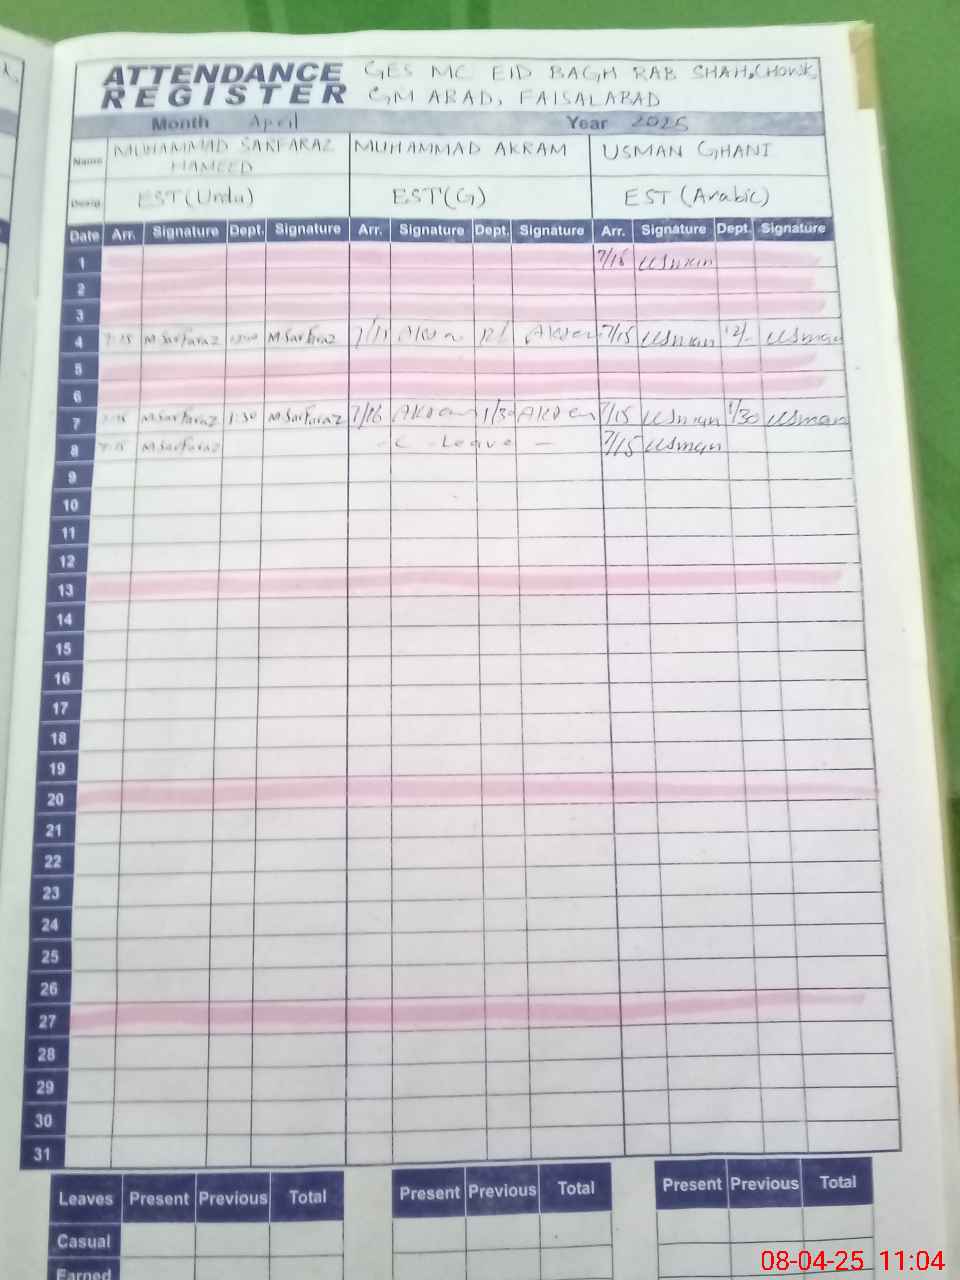 ATTENDANCE REGISTER
GES MC EID BAGH RAB SHAH, CHOWK
GM ABAD, FAISALABAD
Month April Year 2025
Name MUHAMMAD SARFARAZ HAMEED MUHAMMAD AKRAM USMAN GHANI
Desig EST (Urdu) EST (G) EST (Arabic)
Date Arr. Signature Dept. Signature Arr. Signature Dept. Signature Arr. Signature Dept. Signature
1 7/16 Usman
2
3
4 7:15 M Sarfaraz 12:00 M Sarfaraz 7/15 Usman 12/- Usman
5
6
7 M Sarfaraz 1:30 M Sarfaraz 7/16 1/30 7/15 Usman 1/30 Usman
8 7:15 M Sarfaraz - C - Leave - 7/15 Usman
9
10
11
12
13
14
15
16
17
18
19
20
21
22
23
24
25
26
27
28
29
30
31
Leaves Present Previous Total Present Previous Total Present Previous Total
Casual
Earned
08-04-25 11:04